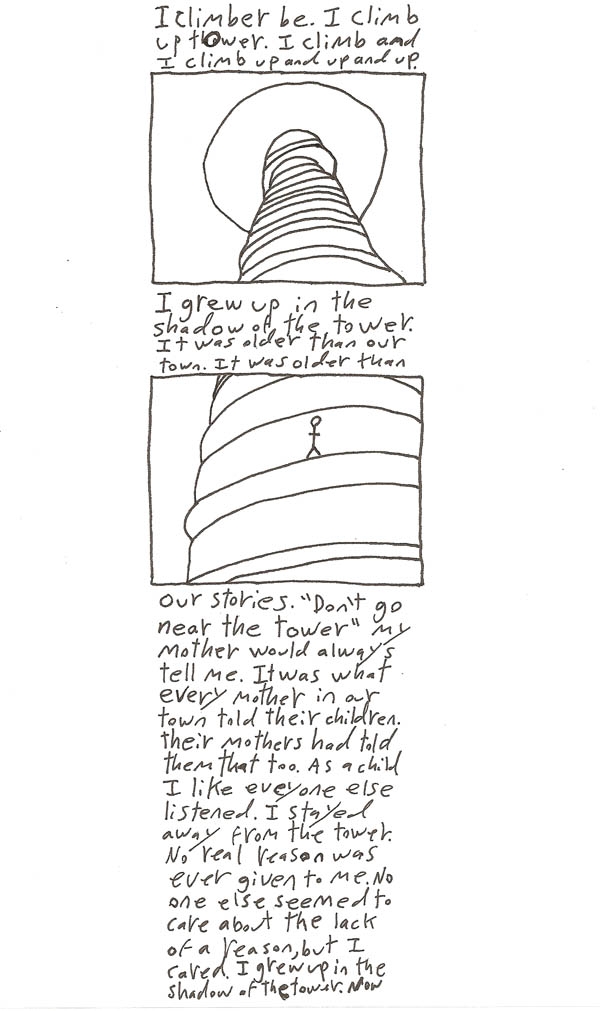 I climber be. I climb
up tower. I climb and
I climb up and up and up.
I grew up in the
shadow of the tower.
It was older than our
town. It was older than
our stories. "Don't go
near the tower" my
mother would always
tell me. It was what
every mother in our
town told their children.
their mothers had told
them that too. As a child
I like everyone else
listened. I stayed
away from the tower.
No real reason was
ever given to me. No
one else seemed to
care about the lack
of a reason, but I
cared. I grew up in the
shadow of the tower. Now